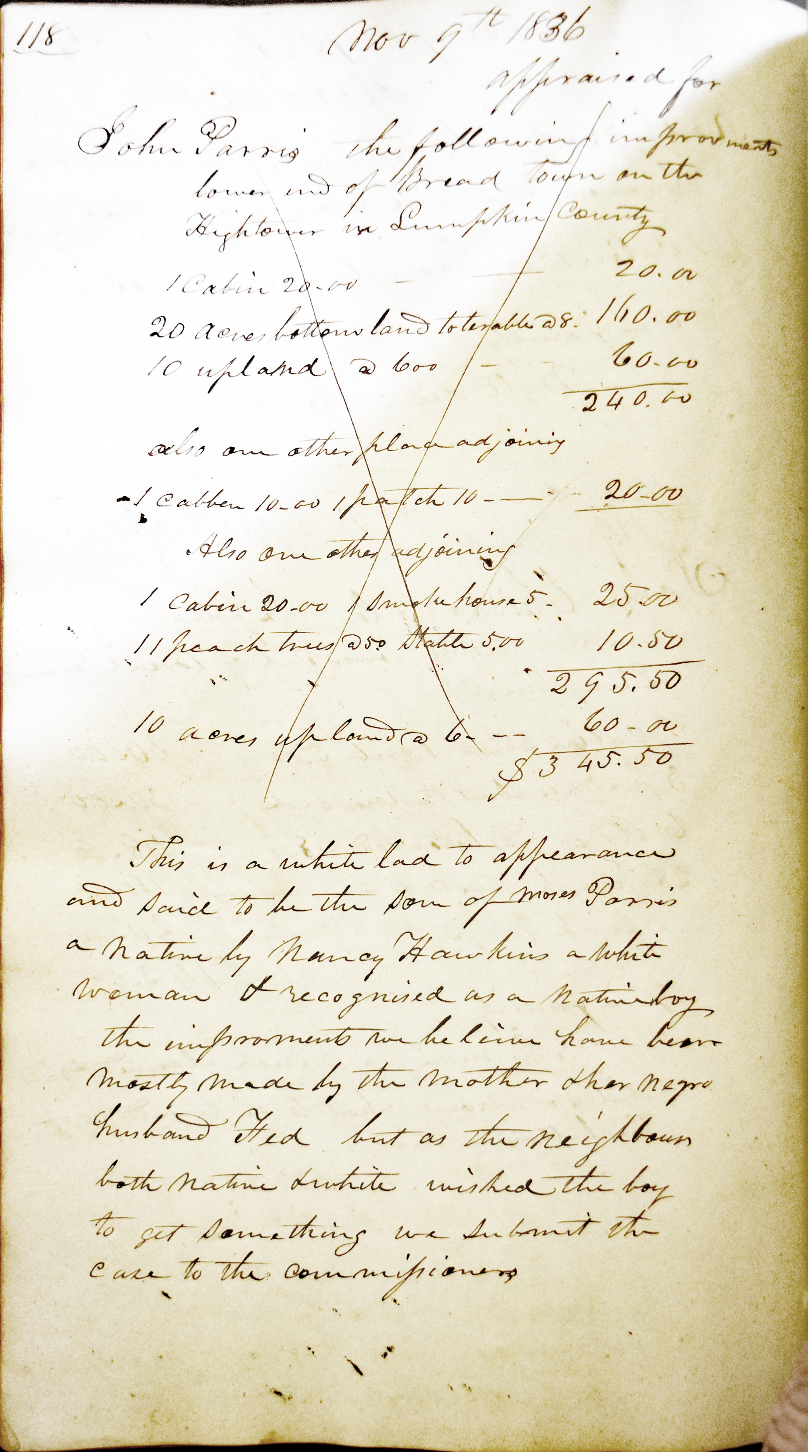 118
Nov 9th 1836
appraised for
John Parris the following improvments
lower end of Bread town on the
Hightower in Lumpkin County
1 Cabin 20-00 - — 20.00
20 acres bottom land tolerable @ 8. 160.00
10 upland @ 600 - - 60-00
240.00
also one other place adjoining
1 cabben 10-00 1 patch 10 - — 20-00
Also one other adjoining
1 Cabin 20-00 1 Smoke house 5- 25.00
11 peach trees @ 50 Stable 5.00 10.50
295.50
10 acres upland @ 6- -- 60-00
$345.50
This is a white lad to appearance
and said to be the son of Moses Parris
a native by Nancy Hawkins a white
woman & recognised as a native boy
the improments we beleive have been
mostly made by the mother & her negro
husband Fed but as the neighbours
both native & white wished the boy
to get something we submit the
case to the commissioners